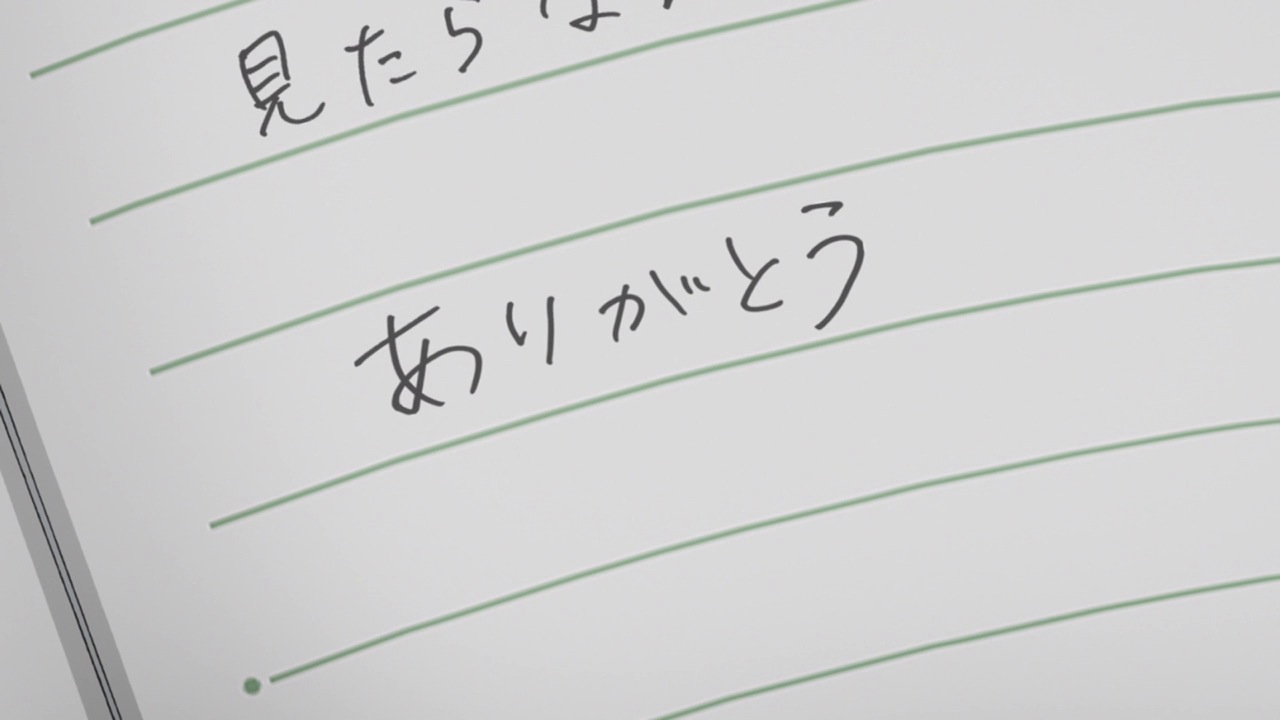 見たらな
ありがとう